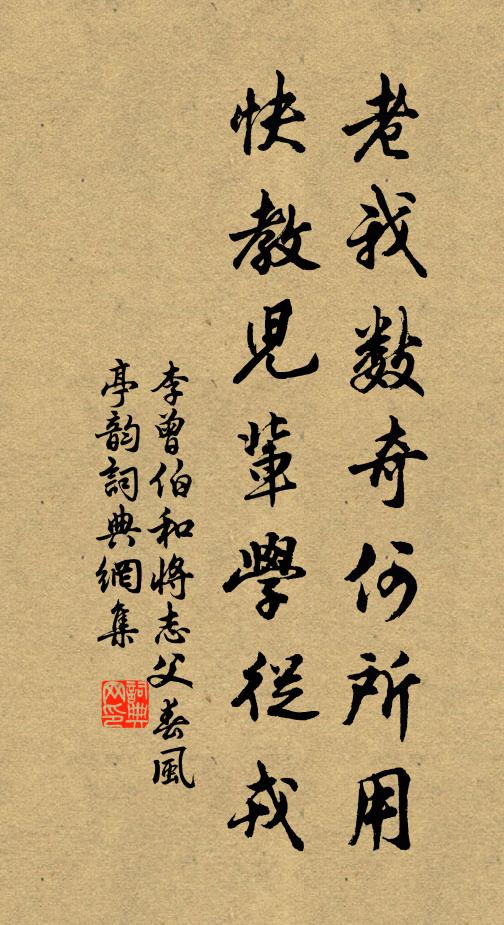 老我數奇何所用
快教兒輩學從戎
李曾伯和將志父春風
亭韵詞典網集
詞典網印